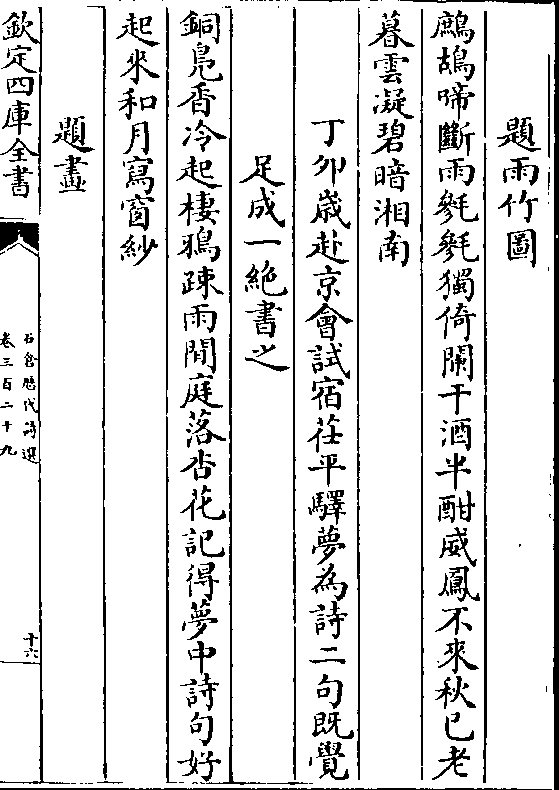 題雨竹圖
鷓鴣啼斷雨毿毿獨倚闌干酒半酣威鳳不來秋已老
暮雲凝碧暗湘南
丁卯歲赴京會試宿茌平驛夢為詩二句既覺
足成一絶書之
銅鳬香冷起棲鴉疎雨閒庭落杏花記得夢中詩句好
起來和月寫窗紗
題畫
欽定四庫全書
石倉歴代詩選
卷三百二十九
十六